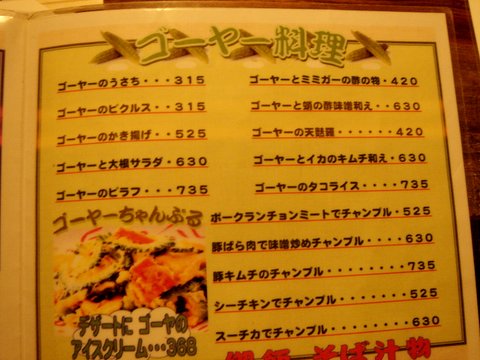 ゴーヤー料理
ゴーヤーのうさち・・・315
ゴーヤーのピクルス・・・315
ゴーヤーのかき揚げ・・525
ゴーヤーと大根サラダ・630
ゴーヤーのピラフ・・・735
ゴーヤーとミミガーの酢の物・420
ゴーヤーと蛸の酢味噌和え・・630
ゴーヤーの天麩羅・・・・・・420
ゴーヤーとイカのキムチ和え・630
ゴーヤーのタコライス・・・・735
ゴーヤーちゃんぷる
ポークランチョンミートでチャンプル・525
豚ばら肉で味噌炒めチャンプル・・・・630
豚キムチのチャンプル・・・・・・・・735
シーチキンでチャンプル・・・・・・・525
スーチカでチャンプル・・・・・・・・630
デザートに ゴーヤの
アイスクリーム・・・368